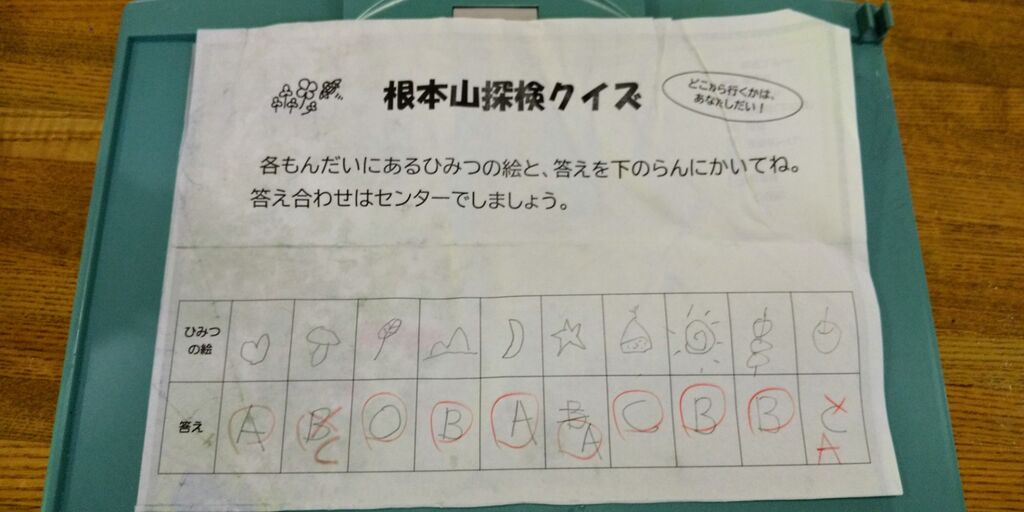 根本山探検クイズ
どこから行くかは、
あなたしだい!
各もんだいにあるひみつの絵と、答えを下のらんにかいてね。
答え合わせはセンターでしましょう。
ひみつ
の絵
答え A B C O B A B A C B B C A